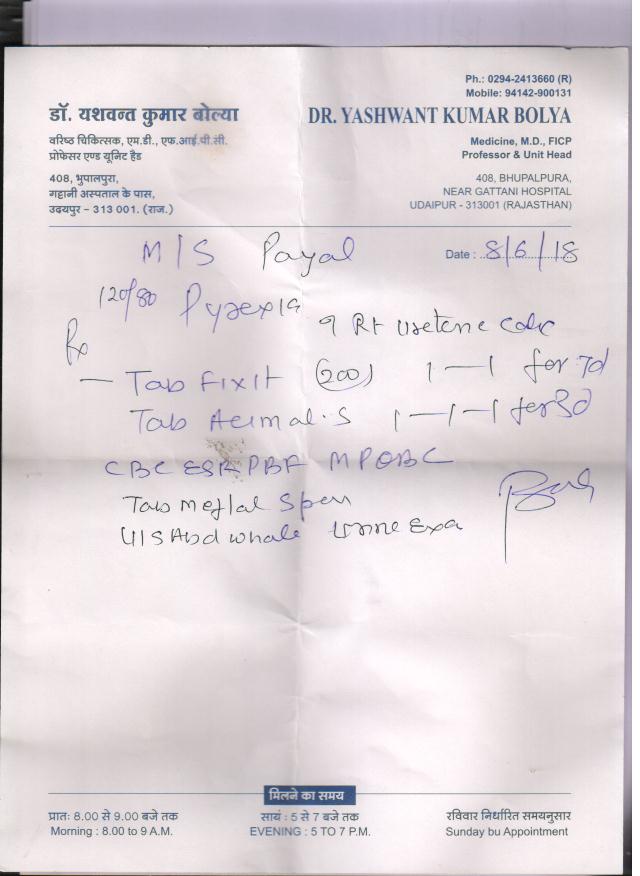 Ph.: 0294-2413660 (R)
Mobile: 94142-900131
डॉ. यशवन्त कुमार बोल्या
DR. YASHWANT KUMAR BOLYA
वरिष्ठ चिकित्सक, एम.डी., एफ.आई.पी.सी.
प्रोफेसर एण्ड यूनिट हैड
Medicine, M.D., FICP
Professor & Unit Head
408, भुपालपुरा,
गट्टानी अस्पताल के पास,
उदयपुर – 313 001. (राज.)
408, BHUPALPURA,
NEAR GATTANI HOSPITAL
UDAIPUR - 313001 (RAJASTHAN)
M/S Payal
Date : 8/6/18
120/80 Pyrexia
? Rt Uretene Colic
Rx
— Tab Fixit (200) 1—1 for 7d
Tab 1—1—1 for 3d
CBC ESR PBF MPQBC
Tab Meftal Spas
U/S Abd whole Urine Exa
मिलने का समय
प्रातः 8.00 से 9.00 बजे तक
Morning : 8.00 to 9 A.M.
सायं : 5 से 7 बजे तक
EVENING : 5 TO 7 P.M.
रविवार निर्धारित समयनुसार
Sunday bu Appointment